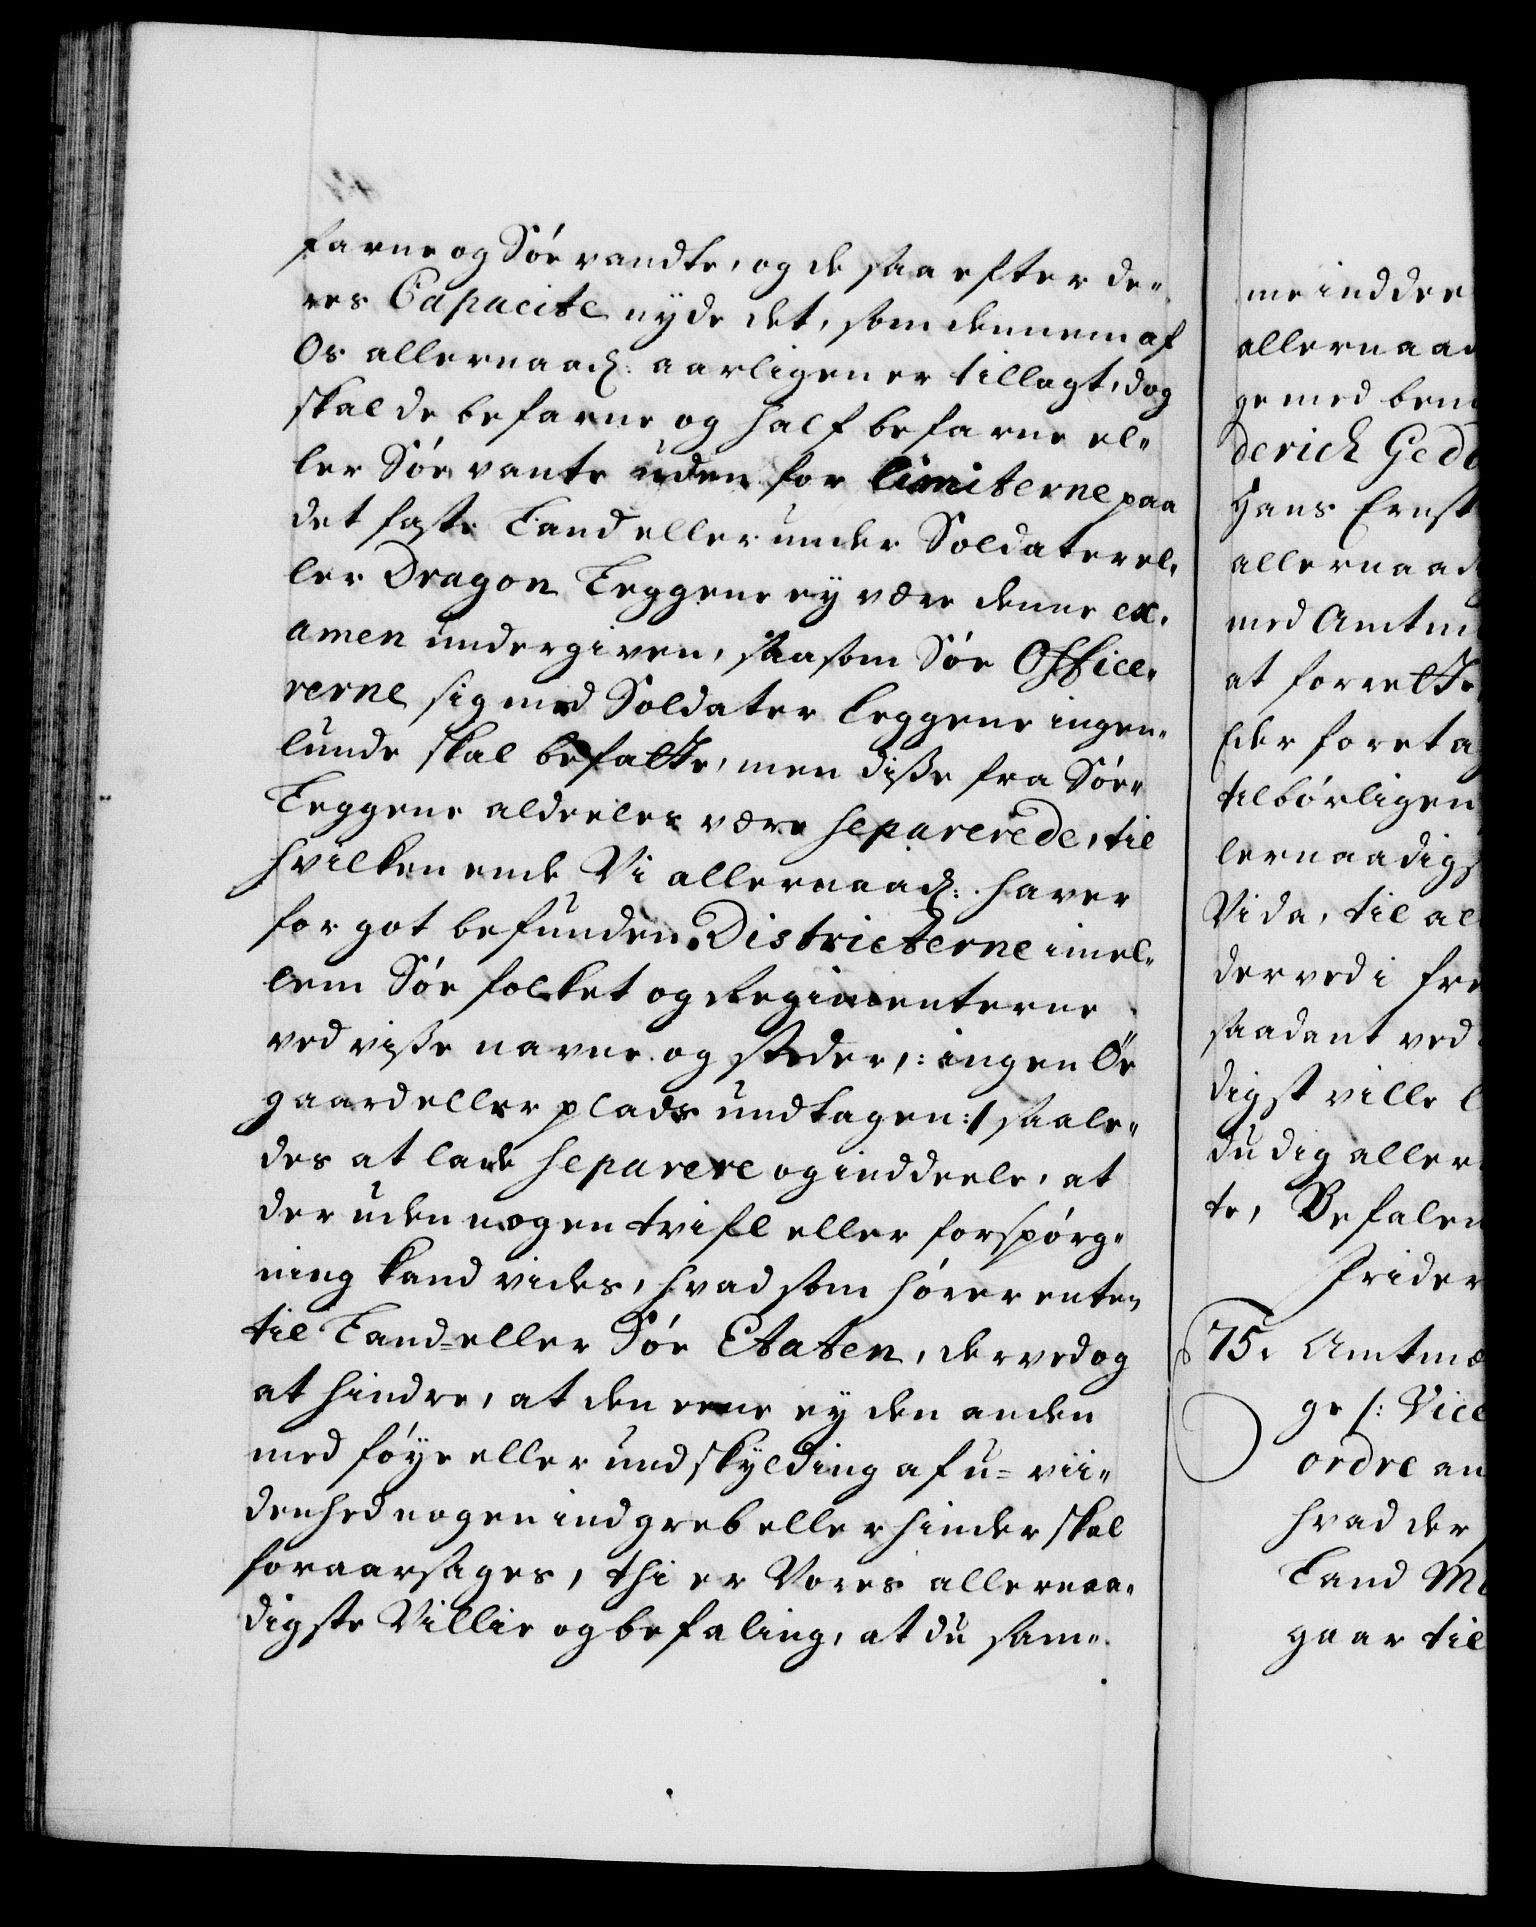 farne og Söe vandte, og de saa efter de-
res Capacite nyde det, som dennem af
Os allernaad: aarligen er tillagt, dog
skal de befarne og half befarne el-
ler Söe vante uden for limiterne paa
det faste Land eller under Soldater el-
ler Dragon Leggene ey være denne ex-
amen undergiven, saasom Söe Office-
rerne sig med Soldater Leggene ingen-
lunde skal befatte, men disse fra Söe-
Leggene aldeeles være separerede, til
hvilken ende Vi allernaad: haver
for got befunden Districterne imel-
lem Söe folket og Regimenterne
ved visse navne og steder, :ingen Öe
gaard eller plads undtagen:/ saale-
des at lade separere og inddeele, at
der uden nogen tvifl eller forspörg-
ning kand vides, hvad som hörer enten
til Land- eller Söe Etaten, derved og
at hindre, at den eene ey den anden
med föye eller undskylding af u- vii-
denhed nogen indgreb eller hinder skal
foraarsages, thi er Vores allernaa-
digste Villie og befaling, at du sam-
me inddee
allernaad
ge med bem
derich Gedd
Hans Ernst
allernaad
med Amtm
at forrette
Eder foreta
tilbörligen
lernaadigs
Vida, til al
derved i fre
saadant ved
digst ville l
du dig aller
te, Befalen
Frider
75. Amtmæ
ge /: Vice
ordre an
hvad der
Land Mi
gaar til